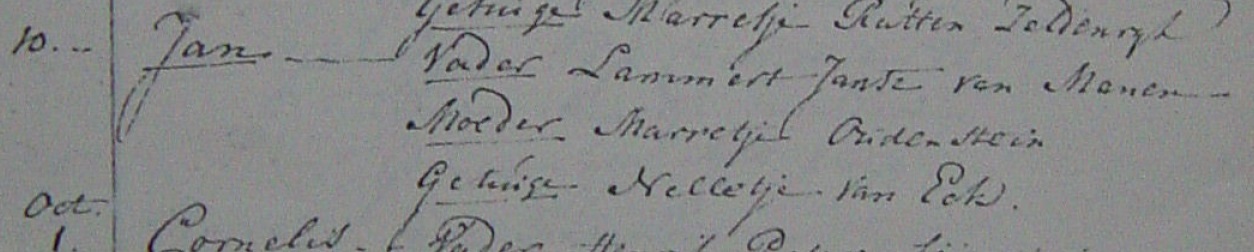 Getuige Marretje Rutten Zeldenryk
10. - - Jan - Vader Lammert Janse van Manen -
Moeder Marretje Oudenstein
Getuige Nelletje van Eck.
Oct.
1. Cornelis - Vader